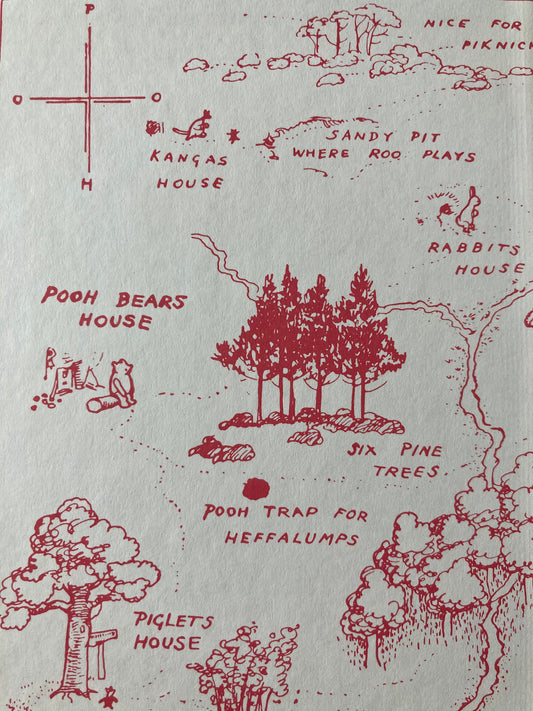 P
O O
H
NICE FOR
PIKNICK
KANGAS
HOUSE
SANDY PIT
WHERE ROO PLAYS
RABBITS
HOUSE
POOH BEARS
HOUSE
SIX PINE
TREES
POOH TRAP FOR
HEFFALUMPS
PIGLETS
HOUSE